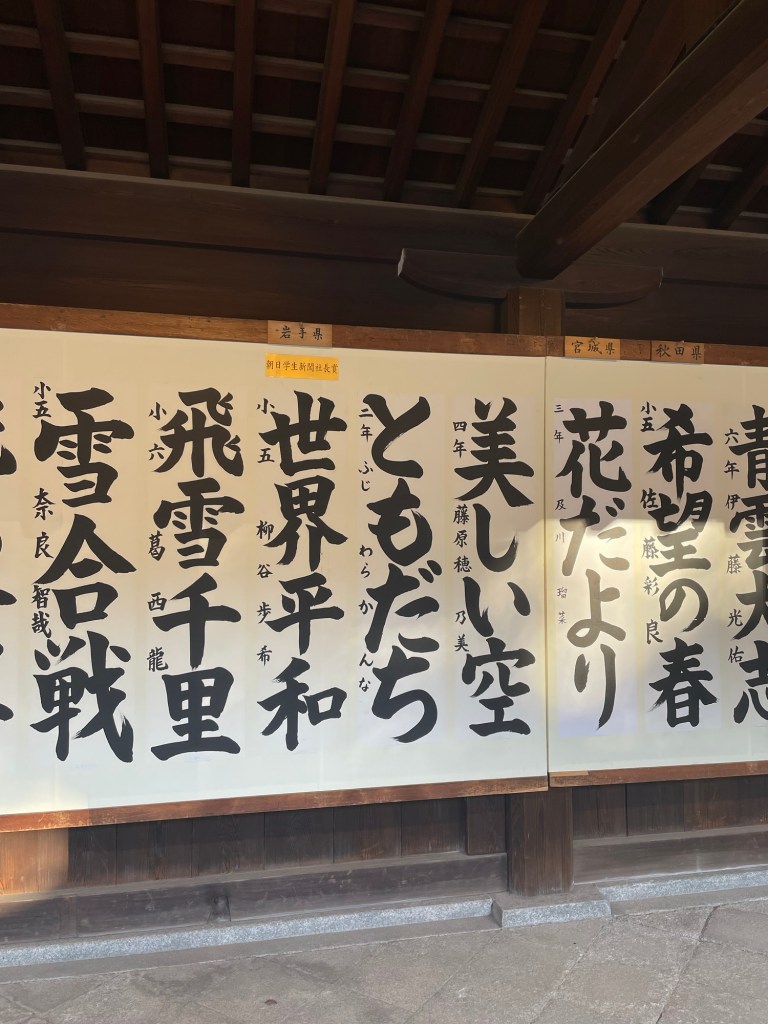 秋田県
宮城県
岩手県
朝日学生新聞社長賞
青雲大志
六年 伊藤光佑
希望の春
小五 佐藤彩良
花だより
三年 及川瑠菜
美しい空
四年 藤原穂乃美
ともだち
二年 ふじわらかんな
世界平和
小五 柳谷歩希
飛雪千里
小六 葛西龍
雪合戦
小五 奈良智哉